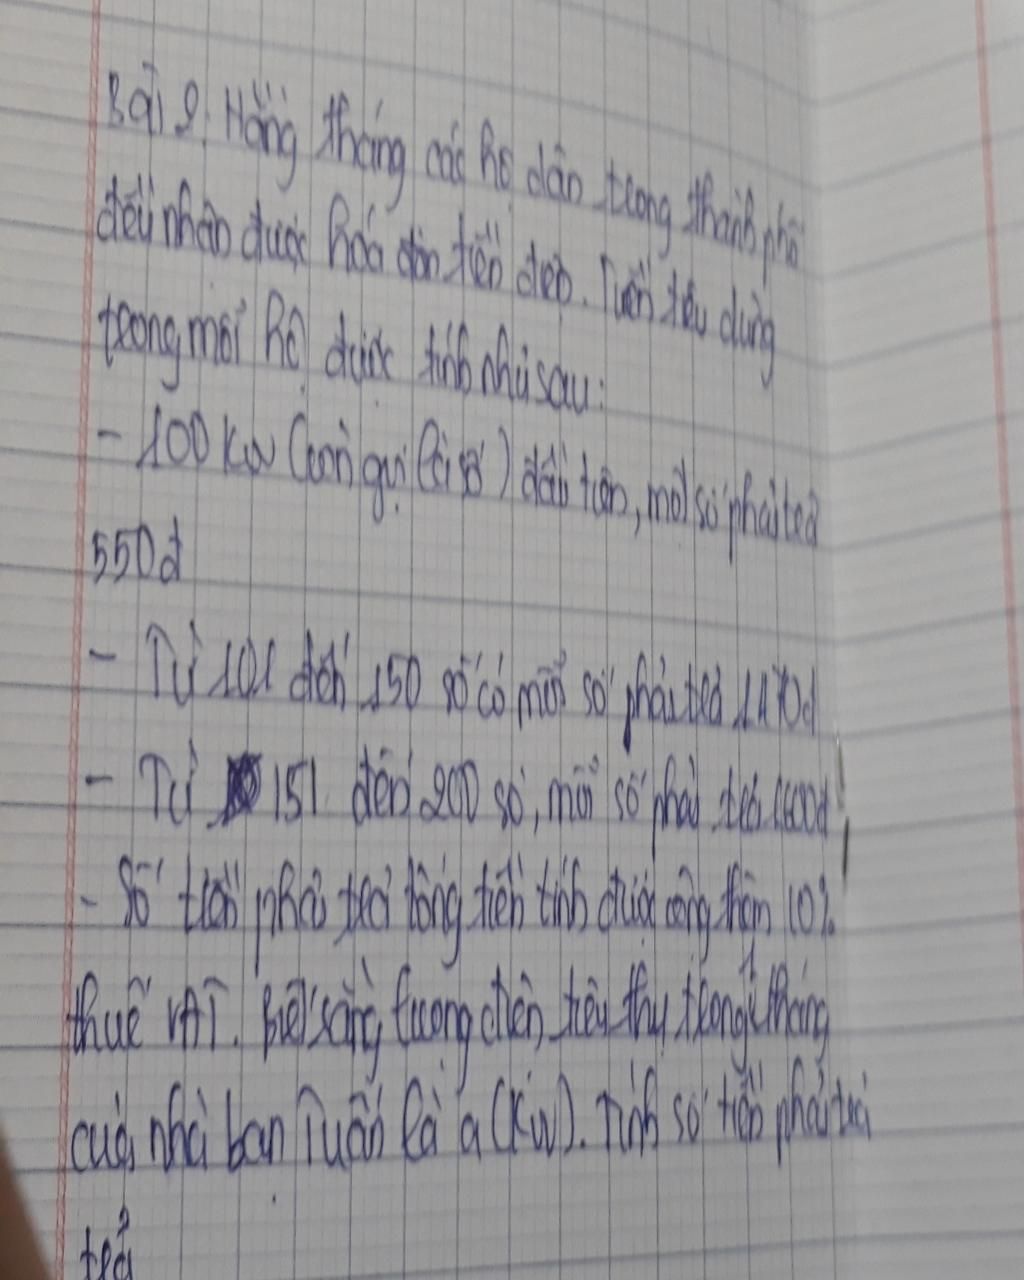 Bài 2. Hằng tháng các hộ dân trong thành phố
đều nhận được hoá đơn tiền điện. Tiền tiêu dùng
trong mỗi hộ được tính như sau:
- 100 KW (còn gọi là số) đầu tiên, một số phải trả
550đ
- Từ 101 đến 150 số có mỗi số phải trả 1470đ
- Từ 151 đến 200 số, mỗi số phải trả
- Số tiền phải trả tổng tiền tính được cộng thêm 10%
thuế VAT. Biết rằng lượng điện tiêu thụ trong 1 tháng
của nhà bạn Tuấn là a (KW). Tính số tiền phải trả
trả